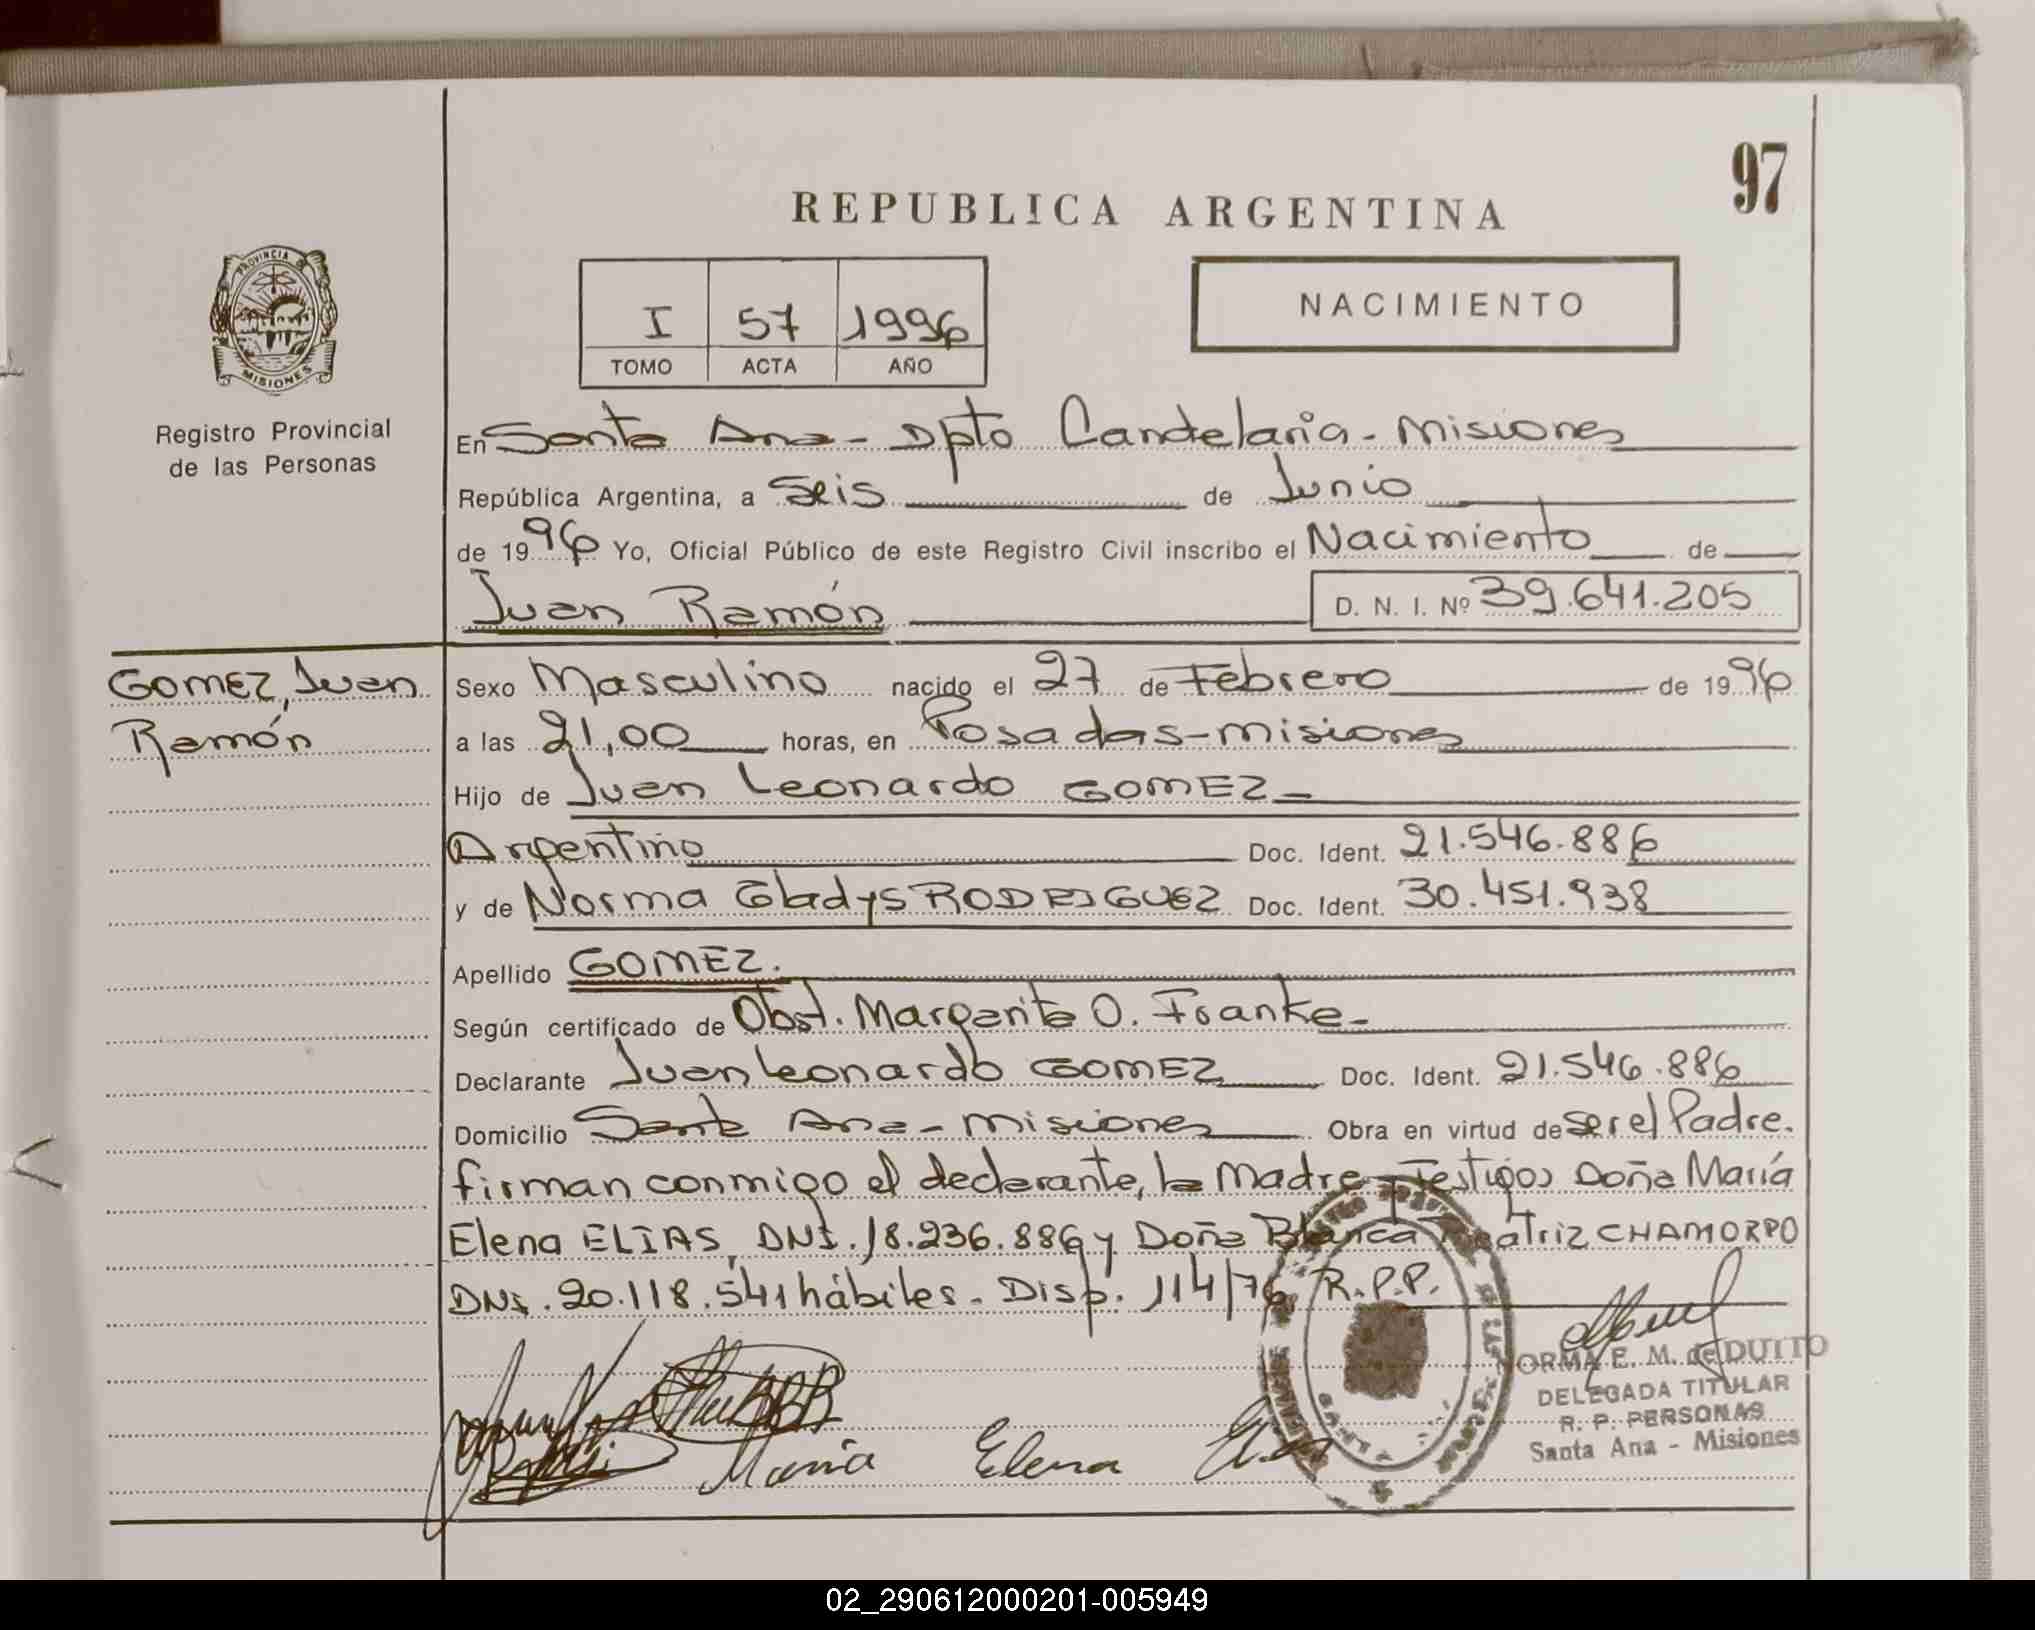 97
REPUBLICA ARGENTINA
PROVINCIA DE
MISIONES
I 57 1996
TOMO ACTA AÑO
NACIMIENTO
Registro Provincial
de las Personas
En Santa Ana - Dpto Candelaria - Misiones
República Argentina, a Seis de Junio
de 1996 Yo, Oficial Público de este Registro Civil inscribo el Nacimiento de
Juan Ramón D. N. I. Nº 39.641.205
GOMEZ, Juan
Ramón
Sexo Masculino nacido el 27 de Febrero de 1996
a las 21,00 horas, en Posadas - Misiones
Hijo de Juan Leonardo GOMEZ -
Argentino Doc. Ident. 21.546.886
y de Norma Gladys RODRIGUEZ Doc. Ident. 30.451.938
Apellido GOMEZ.
Según certificado de Obst. Margarita O. Franke -
Declarante Juan Leonardo GOMEZ Doc. Ident. 21.546.886
Domicilio Santa Ana - Misiones Obra en virtud de ser el Padre.
firman conmigo el declarante, la Madre y Testigos Doña María
Elena ELIAS, DNI. 18.236.886 y Doña Blanca Beatriz CHAMORRO
DNI. 20.118.541 hábiles. Disp. 114/76 R.P.P.
María Elena
ORMA E. M. de DUITO
DELEGADA TITULAR
R. P. PERSONAS
Santa Ana - Misiones
02_290612000201-005949